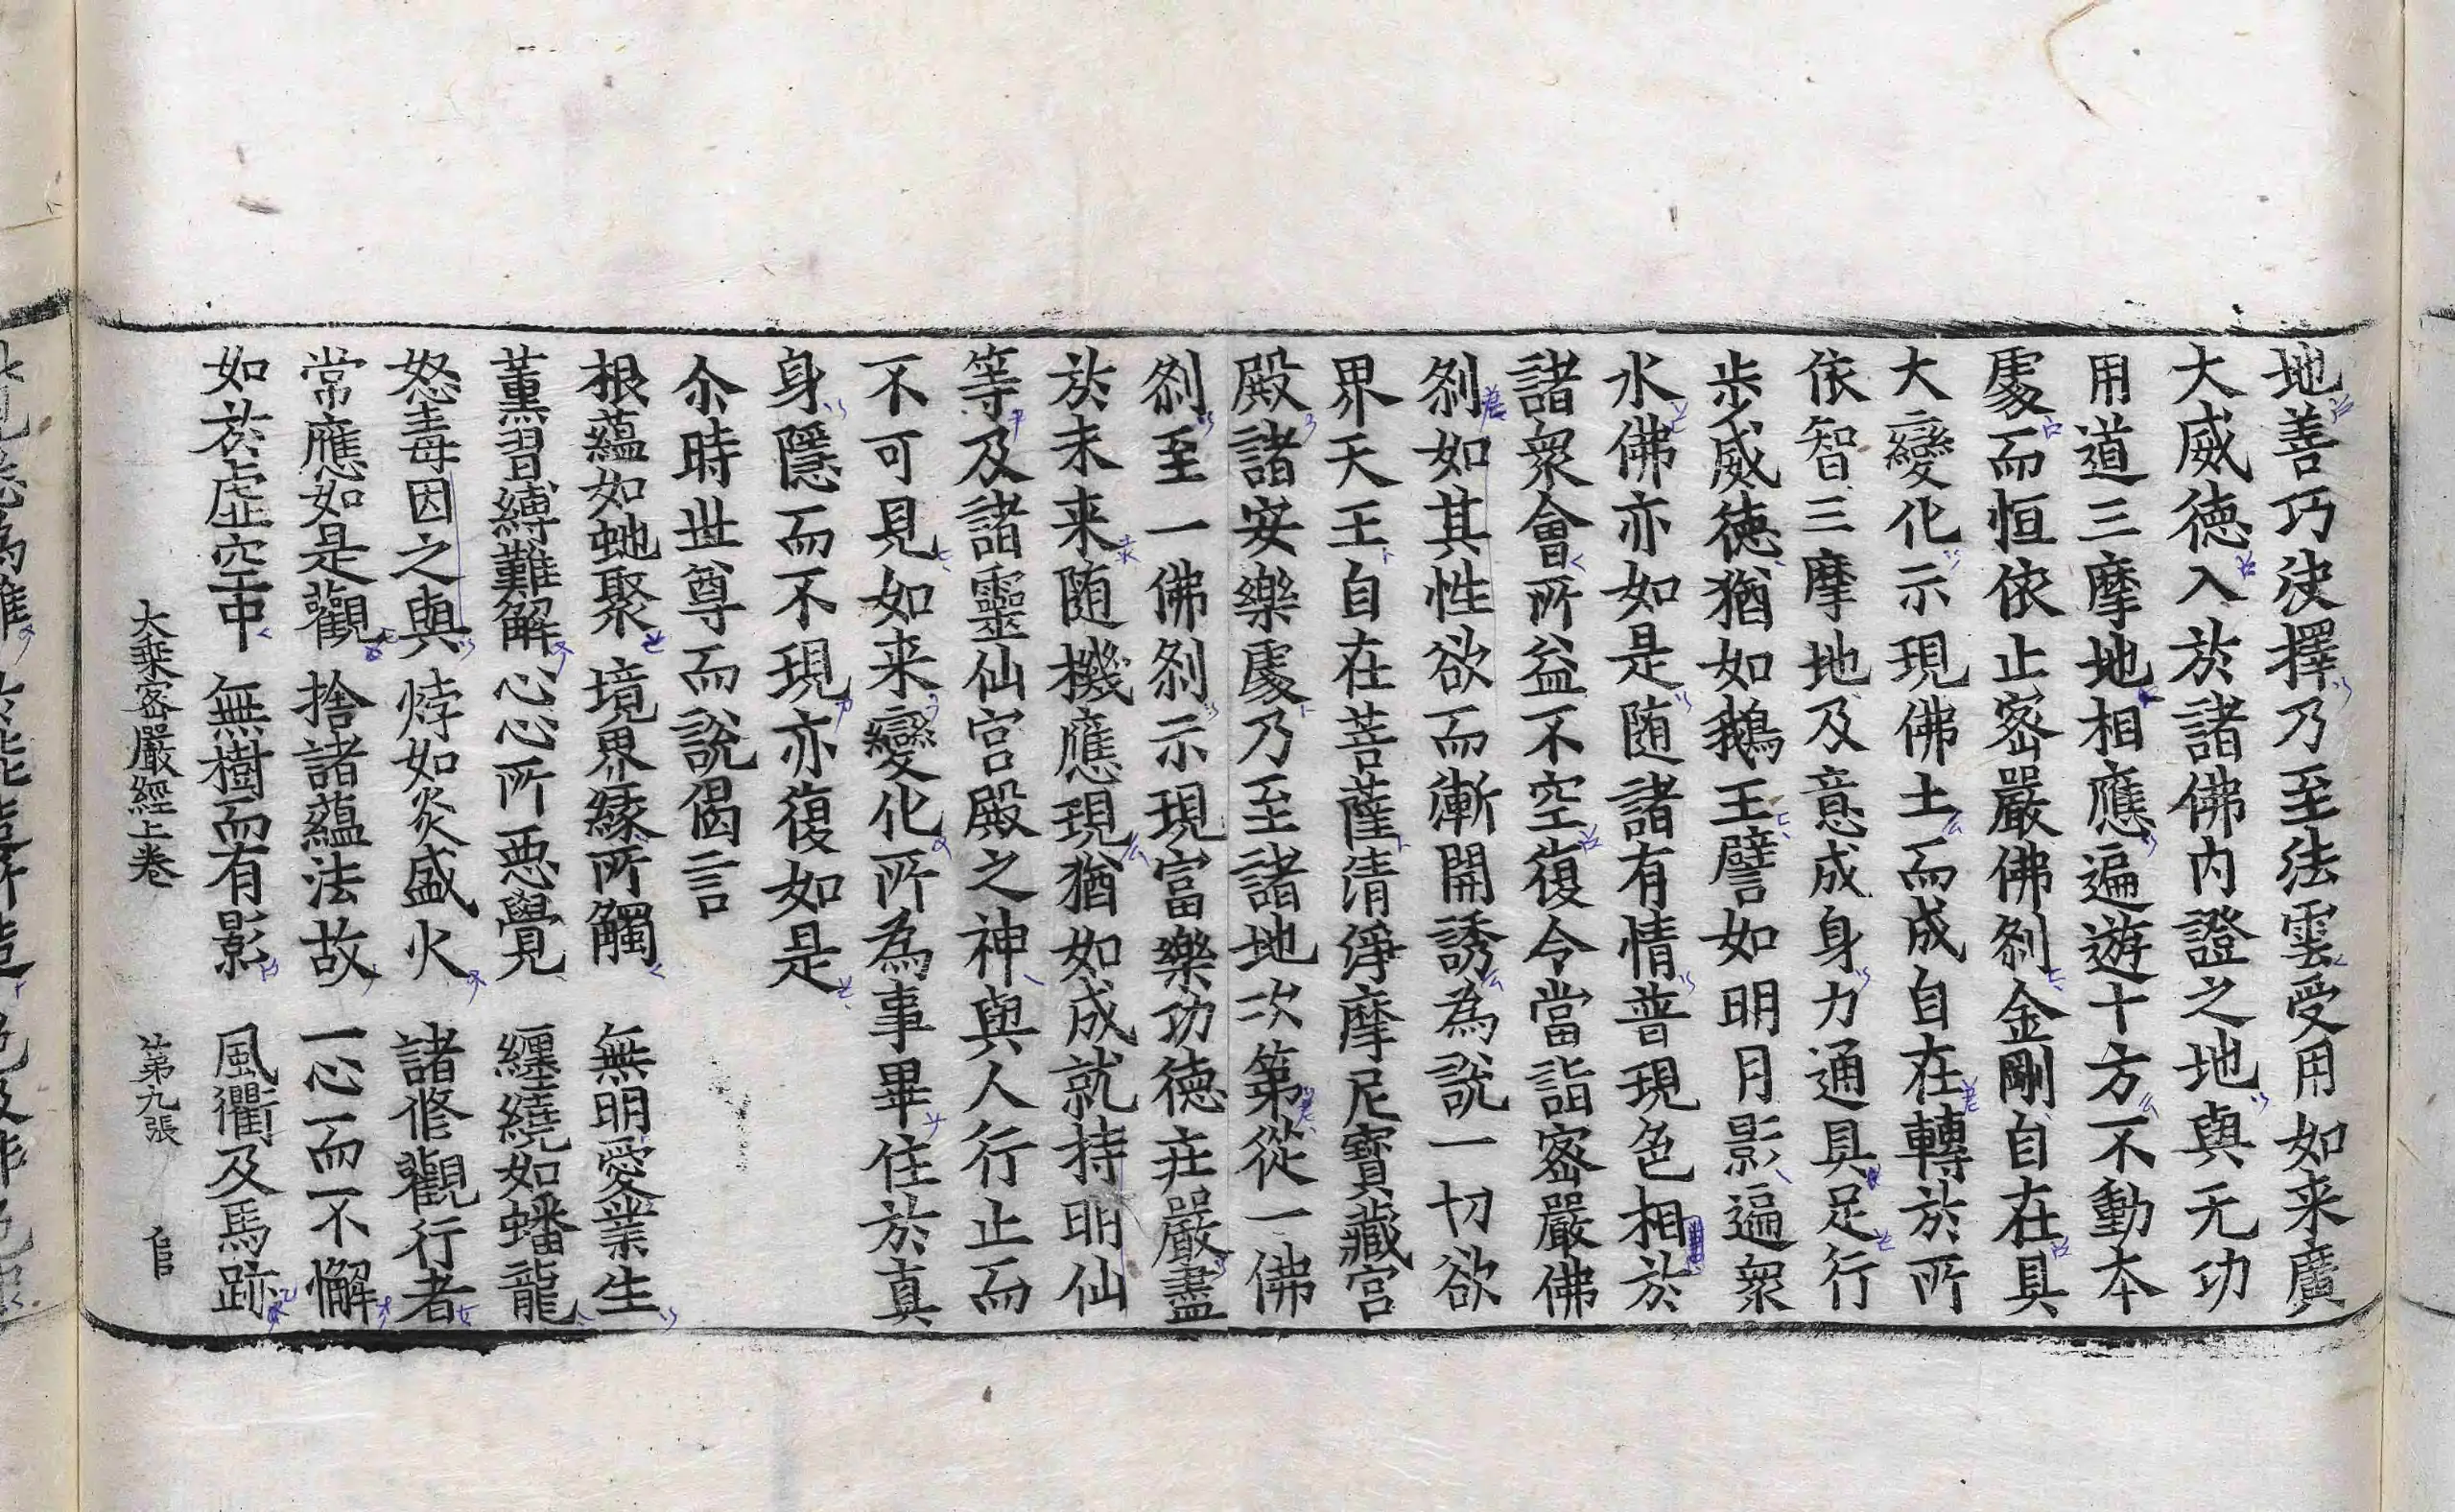 地善巧決擇乃至法雲受用如来廣
大威徳入於諸佛内證之地與无功
用道三摩地相應遍遊十方不動本
處而恒依止宻嚴佛刹金剛自在具
大變化示現佛土而成自在轉於所
依智三摩地及意成身力通具足行
步威徳猶如鵝王譬如明月影遍衆
水佛亦如是随諸有情普現色相於
諸衆會所益不空復令當詣宻嚴佛
刹如其性欲而漸開誘為說一切欲
界天王自在菩薩清淨摩尼寶藏宮
殿諸安樂處乃至諸地次第從一佛
刹至一佛刹示現富樂功徳莊嚴盡
於未来随機應現猶如成就持明仙
等及諸靈仙宮殿之神與人行止而
不可見如来變化所為事畢住於真
身隱而不現亦復如是
尒時世尊而說偈言
根蘊如虵聚 境界縁所觸 無明愛業生
薫習縛難解 心心所惡覺 纒繞如蟠龍
怒毒因之與 㶿如炎盛火 諸修觀行者
常應如是觀 捨諸蘊法故 一心而不懈
如於虛空中 無樹而有影 風衢及馬跡
大乗宻嚴經上卷 第九張